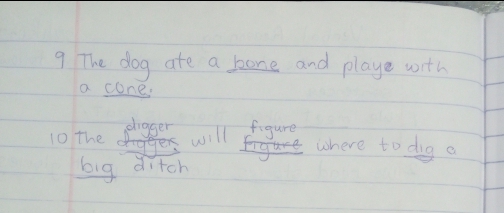 9 The dog ate a bone and playe with
a cone.
digger figure
10 The digger will figure where to dig a
big ditch